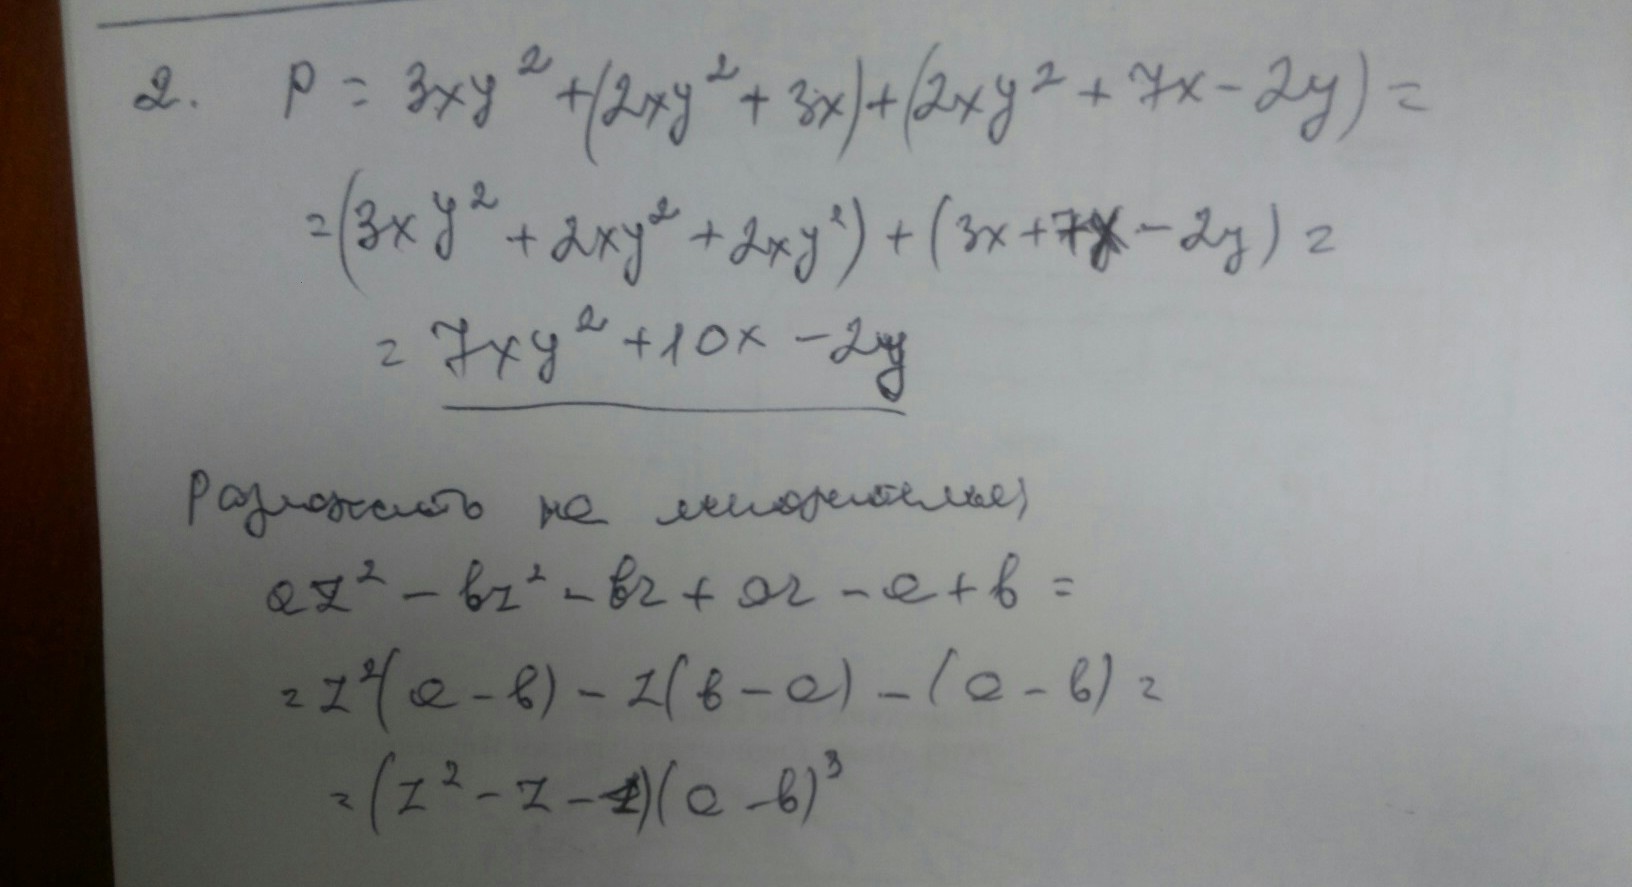 2. P = 3xy² + (2xy² + 3x) + (2xy² + 7x - 2y) =
= (3xy² + 2xy² + 2xy²) + (3x + 7x - 2y) =
= 7xy² + 10x - 2y
Разложить на множители
az² - bz² - bz + az - a + b =
= z²(a - b) - z(b - a) - (a - b) =
= (z² - z - 1)(a - b)³